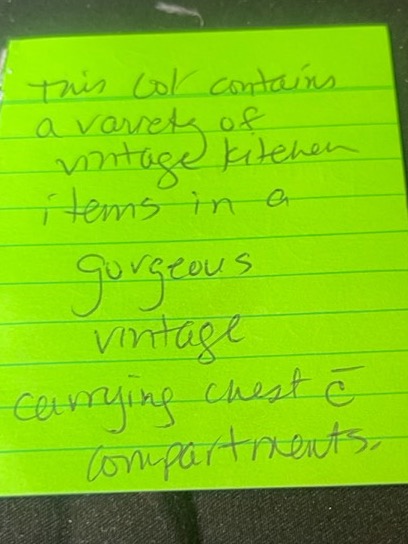 This lot contains
a variety of
vintage kitchen
items in a
gorgeous
vintage
carrying chest c̄
compartments.